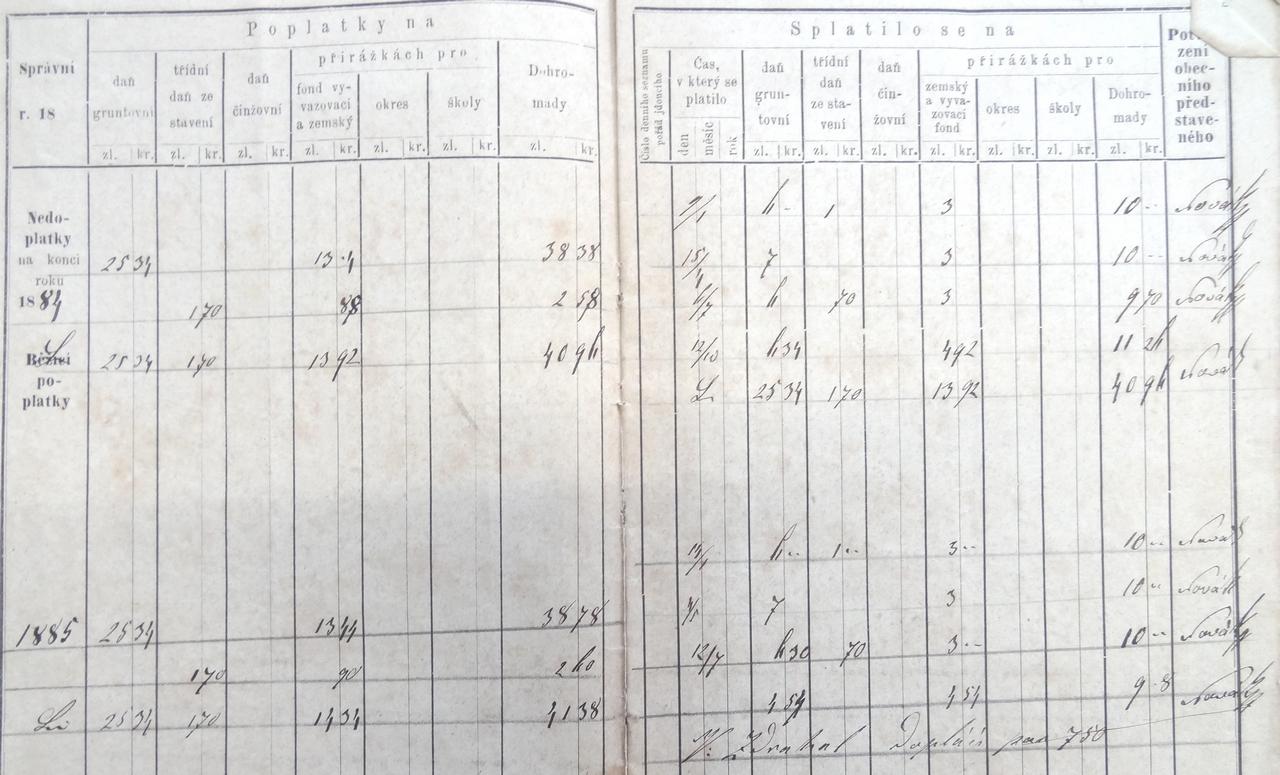 Poplatky na
Správní
r. 18
daň gruntovní
třídní daň ze stavení
daň činžovní
přirážkách pro
fond vyvazovací a zemský
okres
školy
Dohromady
zl. kr. zl. kr. zl. kr. zl. kr. zl. kr. zl. kr. zl. kr.
Nedo-
platky
na konci
roku
1884
25 34 13 04 38 38
1 70 88 2 58
Běžící
po-
platky
25 34 1 70 13 92 40 96
1885 25 34 13 44 38 78
1 70 90 2 60
25 34 1 70 14 34 41 38
Splatilo se na
Číslo denního seznamu
pořád jdoucího
Čas,
v který se
platilo
den
měsíc
rok
daň
grun-
tovní
třídní
daň
ze sta-
vení
daň
čin-
žovní
přirážkách pro
zemský
a vyva-
zovací
fond
okres
školy
Dohro-
mady
zení
obec-
ního
před-
stave-
ného
zl. kr. zl. kr. zl. kr. zl. kr. zl. kr. zl. kr. zl. kr.
6 - 1 3 10 - Novák
7 3 10 - Novák
6 70 3 9 70 Novák
12/10 6 34 4 92 11 26 Novák
25 34 1 70 13 92 40 96
6 - 1 - 3 - 10 - Novák
7 3 10 - Novák
12/7 6 30 70 3 - 10 - Novák
4 54 4 54 9 8 Novák